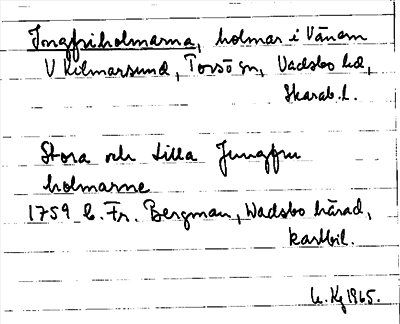 Jungfruholmarna, holmar i Vänern
V Kilmarsund, Torsö sn, Vadsbo hd,
Skarab. l.
Stora och Lilla Jungfru
holmarne
1759 C. Fr. Bergman, Wadsbo härad,
kartbil.
1965.